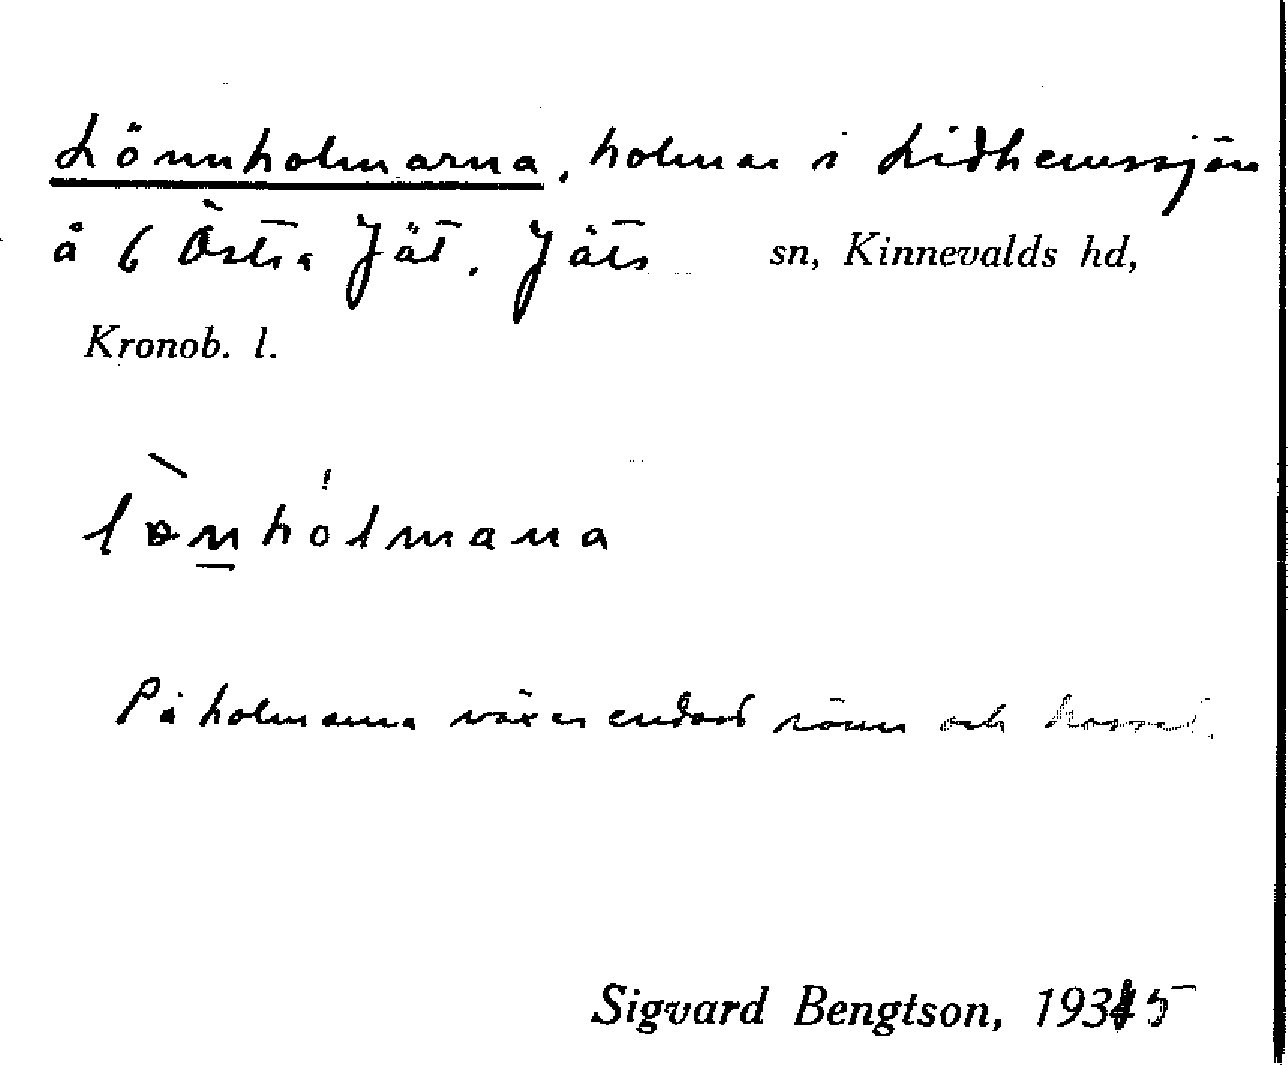 Lönnholmarna, holmar i Lidhemssjön
å 6 Östra Jät, Jäts sn, Kinnevalds hd,
Kronob. l.
lønhólmana
På holmarna växer endast rönn och
Sigvard Bengtson, 1935